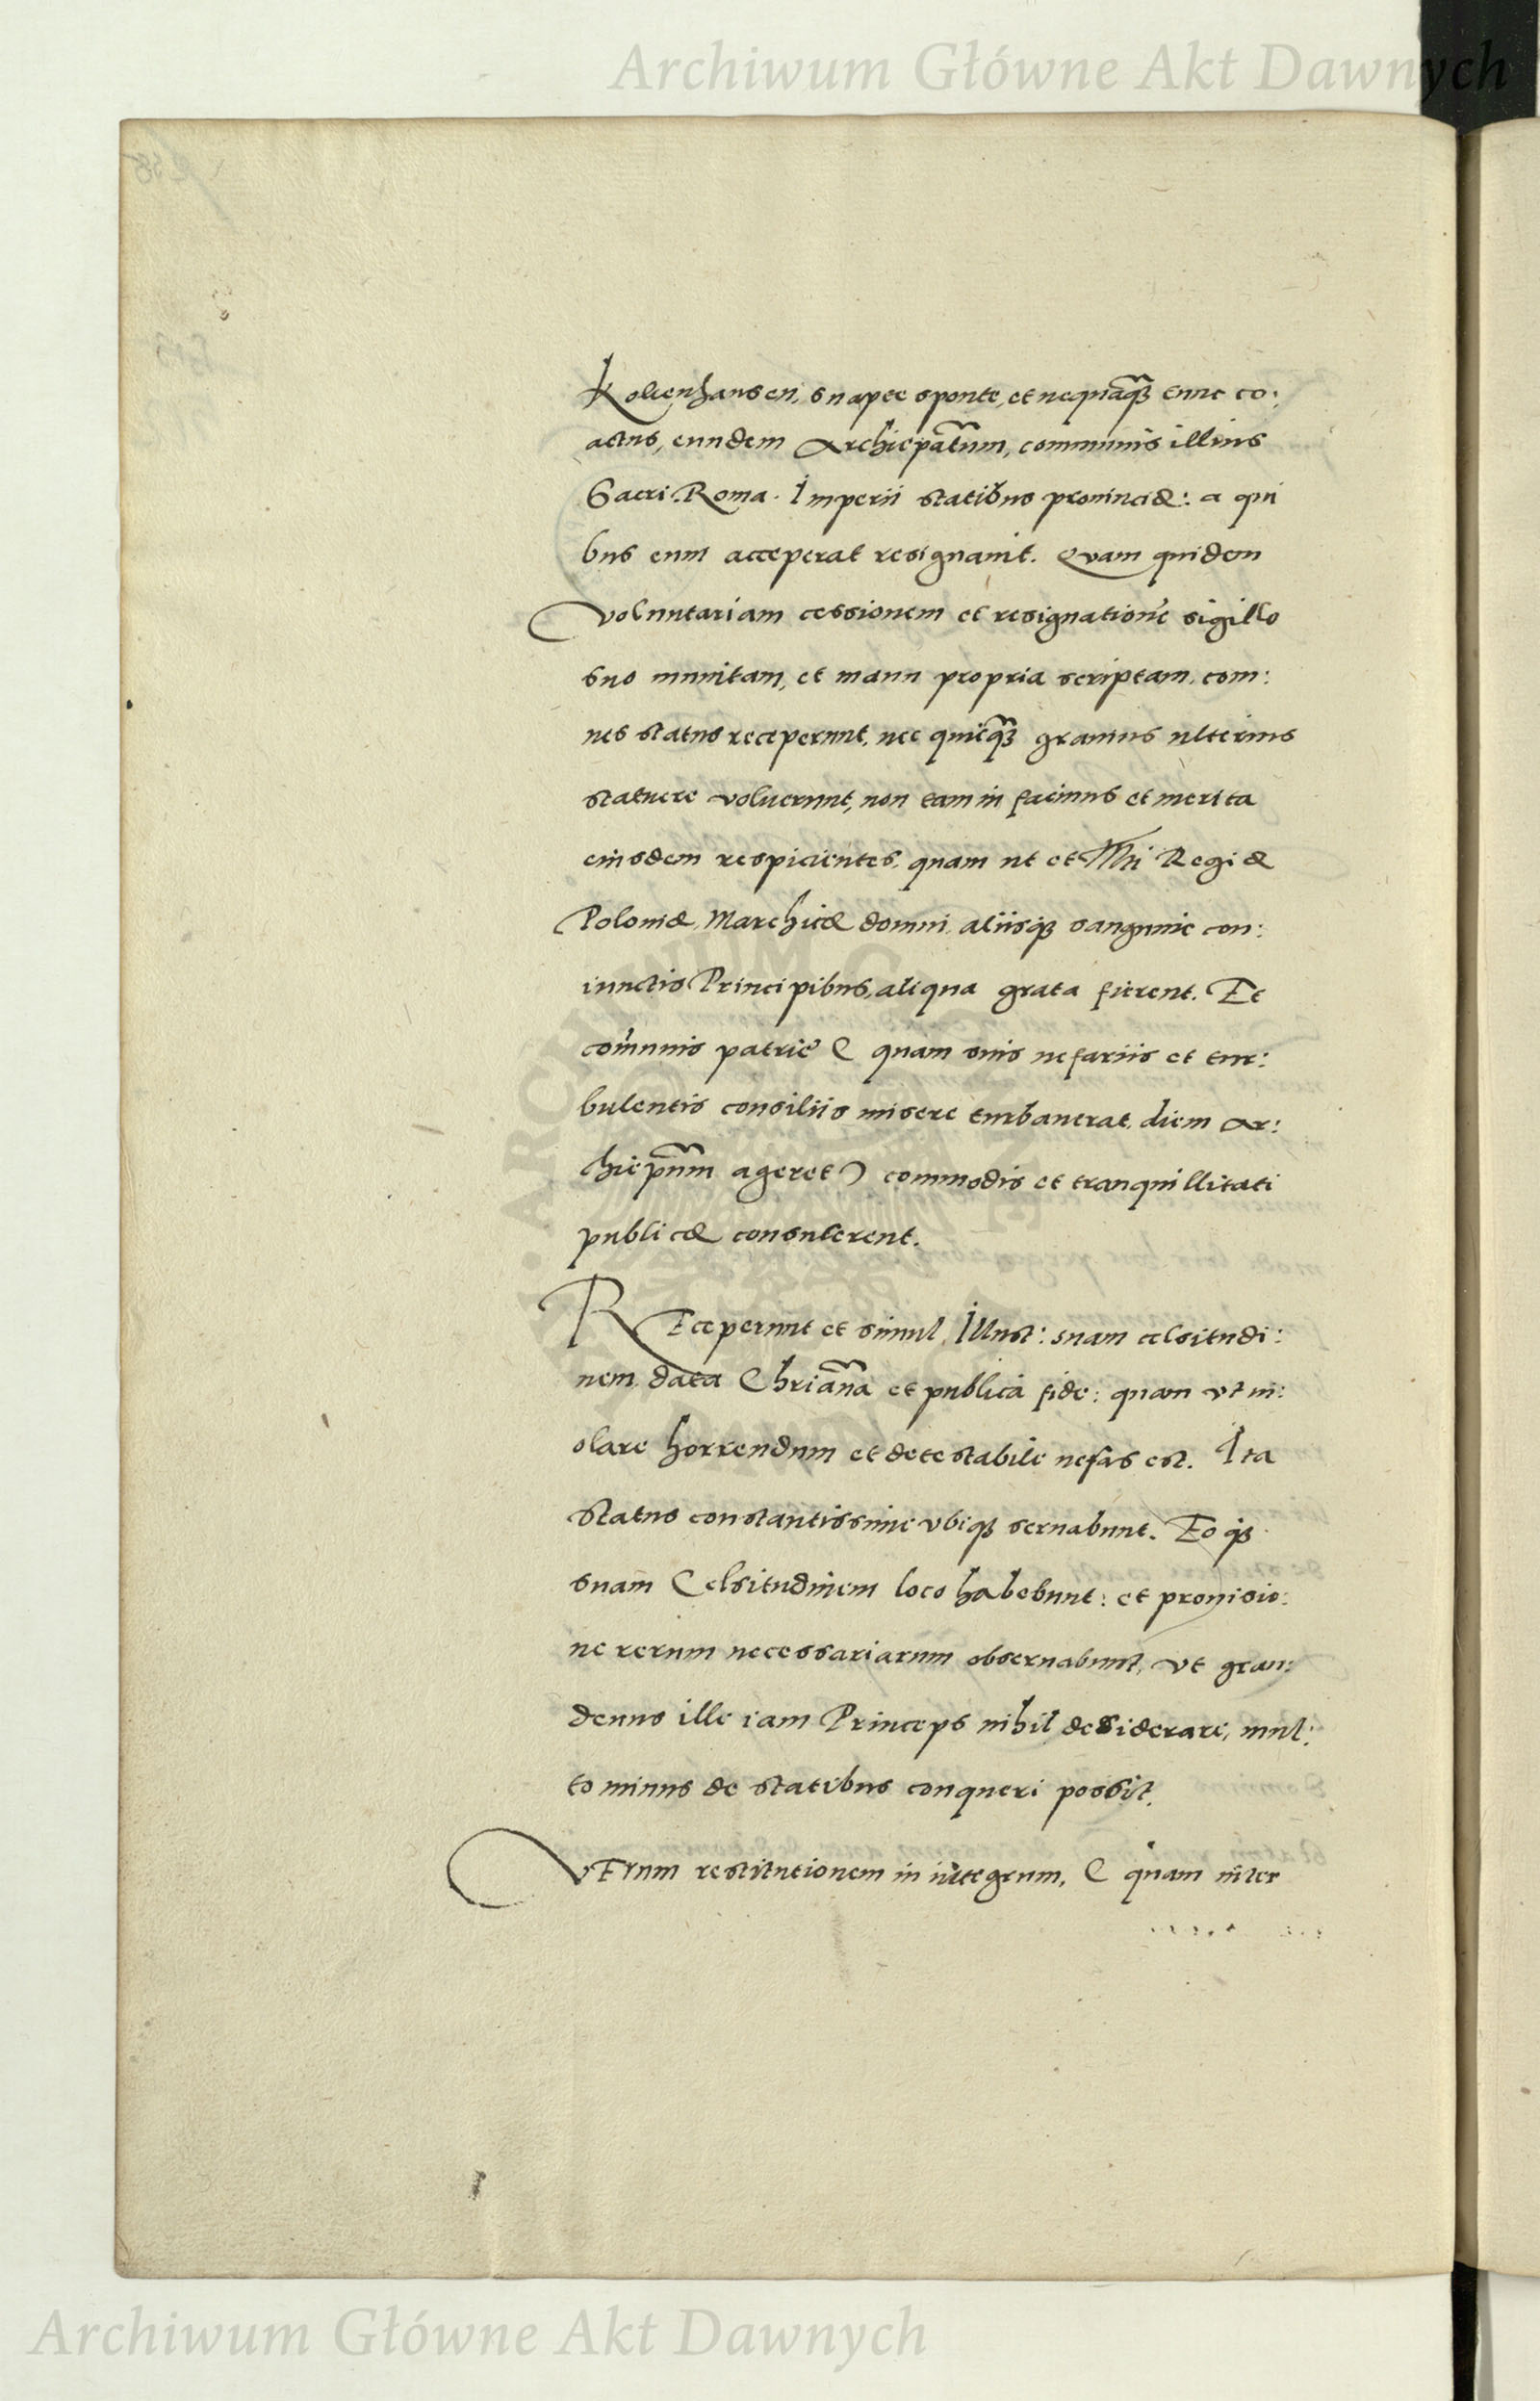 Archiwum Główne Akt Dawnych
Kokenhausen, suapte sponte, et nequaq̃ȝ tunc co:
actus, eundem Archiep̃atum, communis illius
Sacri. Roma. Imperii statibus prouinciæ: a qui
bus eum acceperat resignauit. Quam quidem
voluntariam cessionem et resignationẽ sigillo
suo munitam, et manu propria scriptam, com:
nes status receperunt, nec quicq̃ȝ grauius ulterius
statuere voluerunt, non tam in facinus et merita
eiusdem respicientes, quam ut et M̃ti Regiæ
Poloniæ, Marchicæ domui, aliisqȝ sanguine con:
iunctis Principibus, aliqua grata fierent. Et
com̃unis patriæ ( quam suis nefariis et tur:
bulentis consiliis misere turbauerat, diem Ar:
chiep̃um ageret ) commodis et tranquillitati
publicæ consulerent.
REceperunt et simul Illust: suam celsitudi:
nem data Chris̃tana et publica fide: quam vt ui:
olare horrendum et detestabile nefas est. Ita
Status constantissime vbiqȝ seruabunt. Eo qȝ
suam Celsitudinem loco habebunt: et prouisio:
ne rerum necessariarum obseruabunt, vt gran:
deuus ille iam Princeps nihil desiderare, mul:
to minus de statibus conqueri possit.
VErum restitutionem in integrum, ( quam inter
ARCHIWUM GŁÓWNE AKT DAWNYCH
Archiwum Główne Akt Dawnych